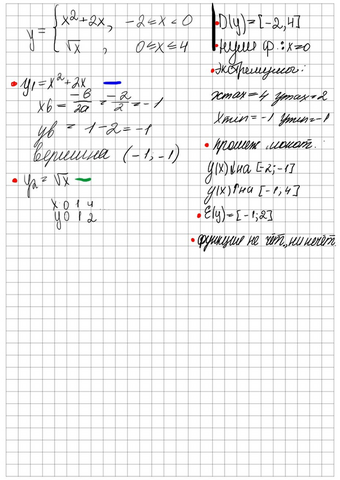 y = { x² + 2x, -2 ≤ x < 0
√x, 0 ≤ x ≤ 4
• y₁ = x² + 2x
xв = -в/2a = -2/2 = -1
yв = 1 - 2 = -1
Вершина (-1, -1)
• y₂ = √x
x 0 1 4
y 0 1 2
• D(y) = [-2, 4]
• нули ф.: x = 0
• экстремумы:
xmax = 4 ymax = 2
xmin = -1 ymin = -1
• промеж. монот.
y(x)↓ на [-2; -1]
y(x)↑ на [-1, 4]
• E(y) = [-1; 2]
• функция не чёт., ни нечёт.